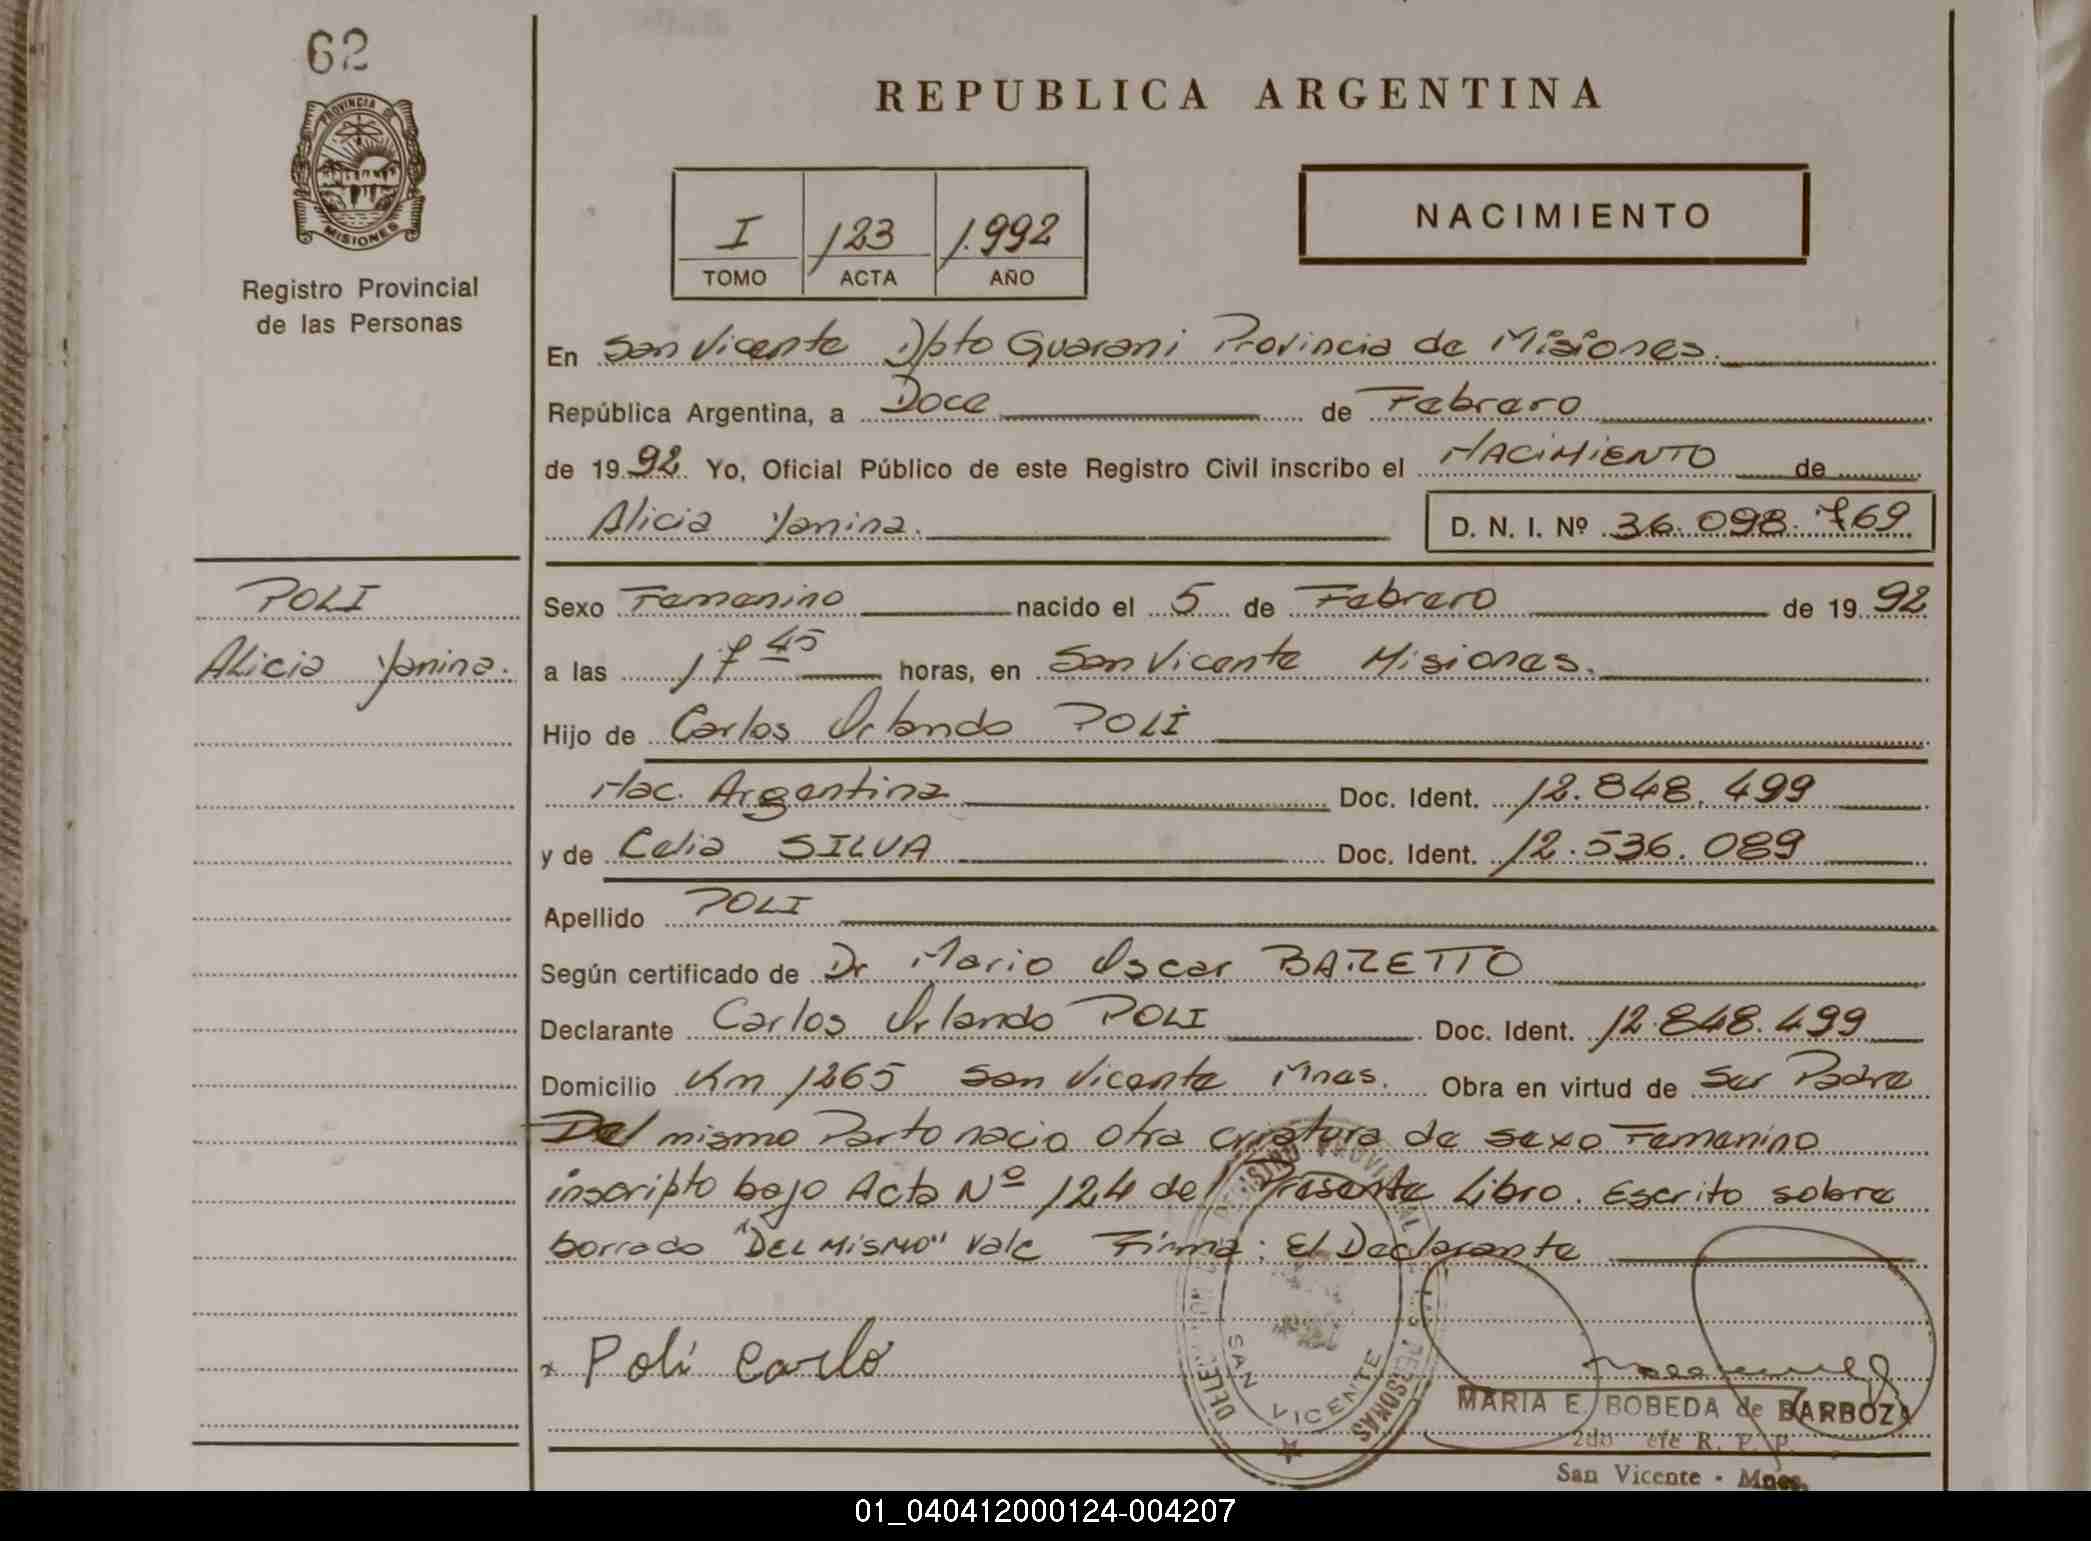 62
REPUBLICA ARGENTINA
PROVINCIA DE
MISIONES
Registro Provincial
de las Personas
I 123 1.992
TOMO ACTA AÑO
NACIMIENTO
En San Vicente Dpto Guarani Provincia de Misiones.
República Argentina, a Doce de Febrero
de 1992 Yo, Oficial Público de este Registro Civil inscribo el NACIMIENTO de
Alicia Yanina. D. N. I. Nº 36.098.769
POLI
Alicia Yanina.
Sexo Femenino nacido el 5 de Febrero de 1992
a las 17 45 horas, en San Vicente Misiones.
Hijo de Carlos Orlando POLI
Nac. Argentina Doc. Ident. 12.848.499
y de Celia SILVA Doc. Ident. 12.536.089
Apellido POLI
Según certificado de Dr Mario Oscar
Declarante Carlos Orlando POLI Doc. Ident. 12.848.499
Domicilio Km 1265 San Vicente Mnes. Obra en virtud de Ser Padre
Del mismo Parto nacio otra criatura de sexo Femenino
inscripto bajo Acta Nº 124 del Presente Libro. Escrito sobre
borrado "DEL MISMO" vale Firma: El Declarante
x Poli Carlo
SAN VICENTE
MARIA E. BOBEDA de BARBOZA
2do efe R. P. P.
San Vicente - Mnes.
01_040412000124-004207